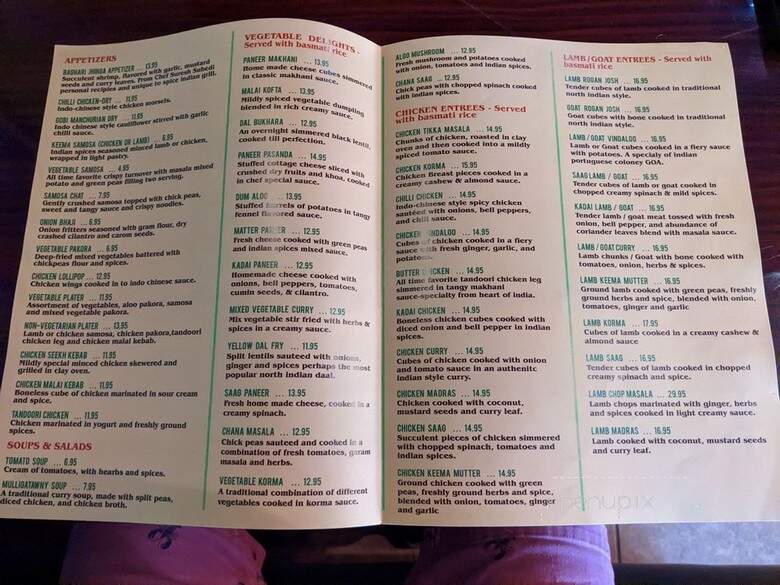 APPETIZERS
BAGHARI JHINGA APPETIZER ... 13.95
Succulent shrimp, flavored with garlic, mustard
seeds and curry leaves. From Chef Suresh Subedi
personal recipies and unique to spice indian grill.
CHILLI CHICKEN-DRY ... 11.95
Indo-chinese style chicken morsels.
GOBI MANCHURIAN DRY ... 11.95
Indo chinese style cauliflower stirred with garlic
chilli sauce.
KEEMA SAMOSA (CHICKEN OR LAMB) ... 6.95
Indian spices seasoned minced lamb or chicken,
wrapped in light pastry.
VEGETABLE SAMOSA ... 4.95
All time favorite crispy turnover with masala mixed
potato and green peas filling two serving.
SAMOSA CHAT ... 7.95
Gently crushed samosa topped with chick peas,
sweet and tangy sauce and crispy noodles.
ONION BHAJI ... 6.95
Onion fritters seasoned with gram flour, dry
crashed cilantro and carom seeds.
VEGETABLE PAKORA ... 6.95
Deep-fried mixed vegetables battered with
chickpeas flour and spices.
CHICKEN LOLLIPOP ... 12.95
Chicken wings cooked in to indo chinese sauce.
VEGETABLE PLATER ... 11.95
Assortment of vegetables, aloo pakora, samosa
and mixed vegetable pakora.
NON-VEGETARIAN PLATER ... 13.95
Lamb or chicken samosa, chicken pakora,tandoori
chicken leg and chicken malai kebab.
CHICKEN SEEKH KEBAB ... 11.95
Mildly special minced chicken skewered and
grilled in clay oven.
CHICKEN MALAI KEBAB ... 11.95
Boneless cube of chicken marinated in sour cream
and spice.
TANDOORI CHICKEN ... 11.95
Chicken marinated in yogurt and freshly ground
spices.
SOUPS & SALADS
TOMATO SOUP ... 6.95
Cream of tomatoes, with hearbs and spices.
MULLIGATAWNY SOUP ... 7.95
A traditional curry soup, made with split peas,
diced chicken, and chicken broth.
VEGETABLE DELIGHTS -
Served with basmati rice
PANEER MAKHANI ... 13.95
Home made cheese cubes simmered
in classic makhani sauce.
MALAI KOFTA ... 13.95
Mildly spiced vegetable dumpling
blended in rich creamy sauce.
DAL BUKHARA ... 12.95
An overnight simmered black lentil,
cooked till perfection.
PANEER PASANDA ... 14.95
Stuffed cottage cheese sliced with
crushed dry fruits and khoa, cooked
in chef special sauce.
DUM ALOO ... 13.95
Stuffed barrels of potatoes in tangy
fennel flavored sauce.
MATTER PANEER ... 12.95
Fresh cheese cooked with green peas
and indian spices mixed sauce.
KADAI PANEER ... 12.95
Homemade cheese cooked with
onions, bell peppers, tomatoes,
cumin seeds, & cilantro.
MIXED VEGETABLE CURRY ... 12.95
Mix vegetable stir fried with herbs &
spices in a creamy sauce.
YELLOW DAL FRY ... 11.95
Split lentils sauteed with onions,
ginger and spices perhaps the most
popular north indian daal.
SAAG PANEER ... 13.95
Fresh home made cheese, cooked in a
creamy spinach.
CHANA MASALA ... 12.95
Chick peas sauteed and cooked in a
combination of fresh tomatoes, garam
masala and herbs.
VEGETABLE KORMA ... 12.95
A traditional combination of different
vegetables cooked in korma sauce.
ALGO MUSHROOM ... 12.95
Fresh mushroom and potatoes cooked
with onion, tomatoes and indian spices.
CHANA SAAG ... 12.95
Chick peas with chopped spinach cooked
with indian spices.
CHICKEN ENTREES - Served
with basmati rice
CHICKEN TIKKA MASALA ... 14.95
Chunks of chicken, roasted in clay
oven and then cooked into a mildly
spiced tomato sauce.
CHICKEN KORMA ... 15.95
Chicken Breast pieces cooked in a
creamy cashew & almond sauce.
CHILLI CHICKEN ... 14.95
Indo-chinese style spicy chicken
sautéed with onions, bell peppers,
and chili sauce.
CHICKEN VINDALOO ... 14.95
Cubes of chicken cooked in a fiery
sauce with fresh ginger, garlic, and
potatoes.
BUTTER CHICKEN ... 14.95
All time favorite tandoori chicken leg
simmered in tangy makhani
sauce-specialty from heart of india.
KADAI CHICKEN ... 14.95
Boneless chicken cubes cooked with
diced onion and bell pepper in indian
spices.
CHICKEN CURRY ... 14.95
Cubes of chicken cooked with onion
and tomato sauce in an authenitc
indian style curry.
CHICKEN MADRAS ... 14.95
Chicken cooked with coconut,
mustard seeds and curry leaf.
CHICKEN SAAG ... 14.95
Succulent pieces of chicken simmered
with chopped spinach, tomatoes and
indian spices.
CHICKEN KEEMA MUTTER ... 14.95
Ground chicken cooked with green
peas, freshly ground herbs and spice,
blended with onion, tomatoes, ginger
and garlic
LAMB/GOAT ENTREES - Served with
basmati rice
LAMB ROGAN JOSH ... 16.95
Tender cubes of lamb cooked in traditional
north indian style.
GOAT ROGAN JOSH ... 16.95
Goat cubes with bone cooked in traditional
north indian style.
LAMB / GOAT VINDALOO ... 16.95
Lamb or Goat cubes cooked in a fiery sauce
with potatoes. A specialy of indian
portuguese colony GOA.
SAAG LAMB / GOAT ... 16.95
Tender cubes of lamb or goat cooked in
chopped creamy spinach & mild spices.
KADAI LAMB / GOAT ... 16.95
Tender lamb / goat meat tossed with fresh
onion, bell pepper, and abundance of
coriander leaves blend with masala sauce.
LAMB / GOAT CURRY ... 16.95
Lamb chunks / Goat with bone cooked with
tomatoes, onion, herbs & spices.
LAMB KEEMA MUTTER ... 16.95
Ground lamb cooked with green peas, freshly
ground herbs and spice, blended with onion,
tomatoes, ginger and garlic
LAMB KORMA ... 17.95
Cubes of lamb cooked in a creamy cashew &
almond sauce
LAMB SAAG ... 16.95
Tender cubes of lamb cooked in chopped
creamy spinach and spice.
LAMB CHOP MASALA ... 29.95
Lamb chops marinated with ginger, herbs
and spices cooked in light creamy sauce.
LAMB MADRAS ... 16.95
Lamb cooked with coconut, mustard seeds
and curry leaf.
menupix